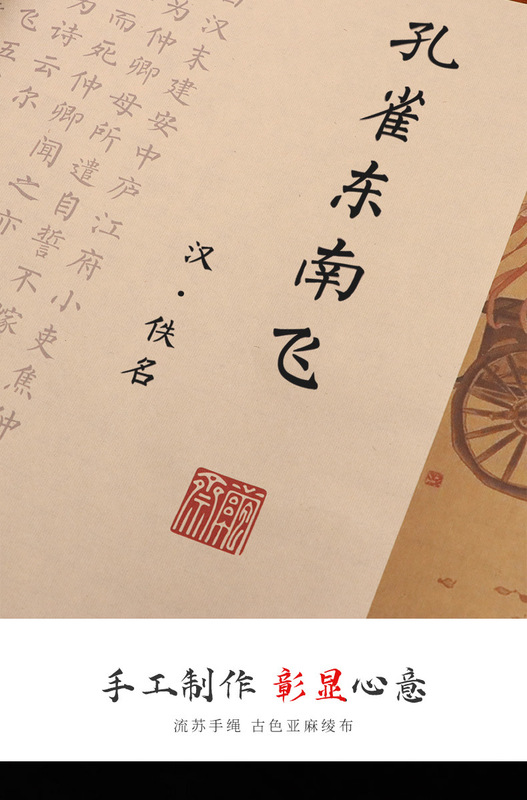 孔雀东南飞
汉·佚名
汉末建安中庐江府小吏焦仲
为仲卿母所遣自誓不嫁
而死仲卿闻之亦
为诗云尔
飞五
手工制作 彰显心意
流苏手绳 古色亚麻绫布